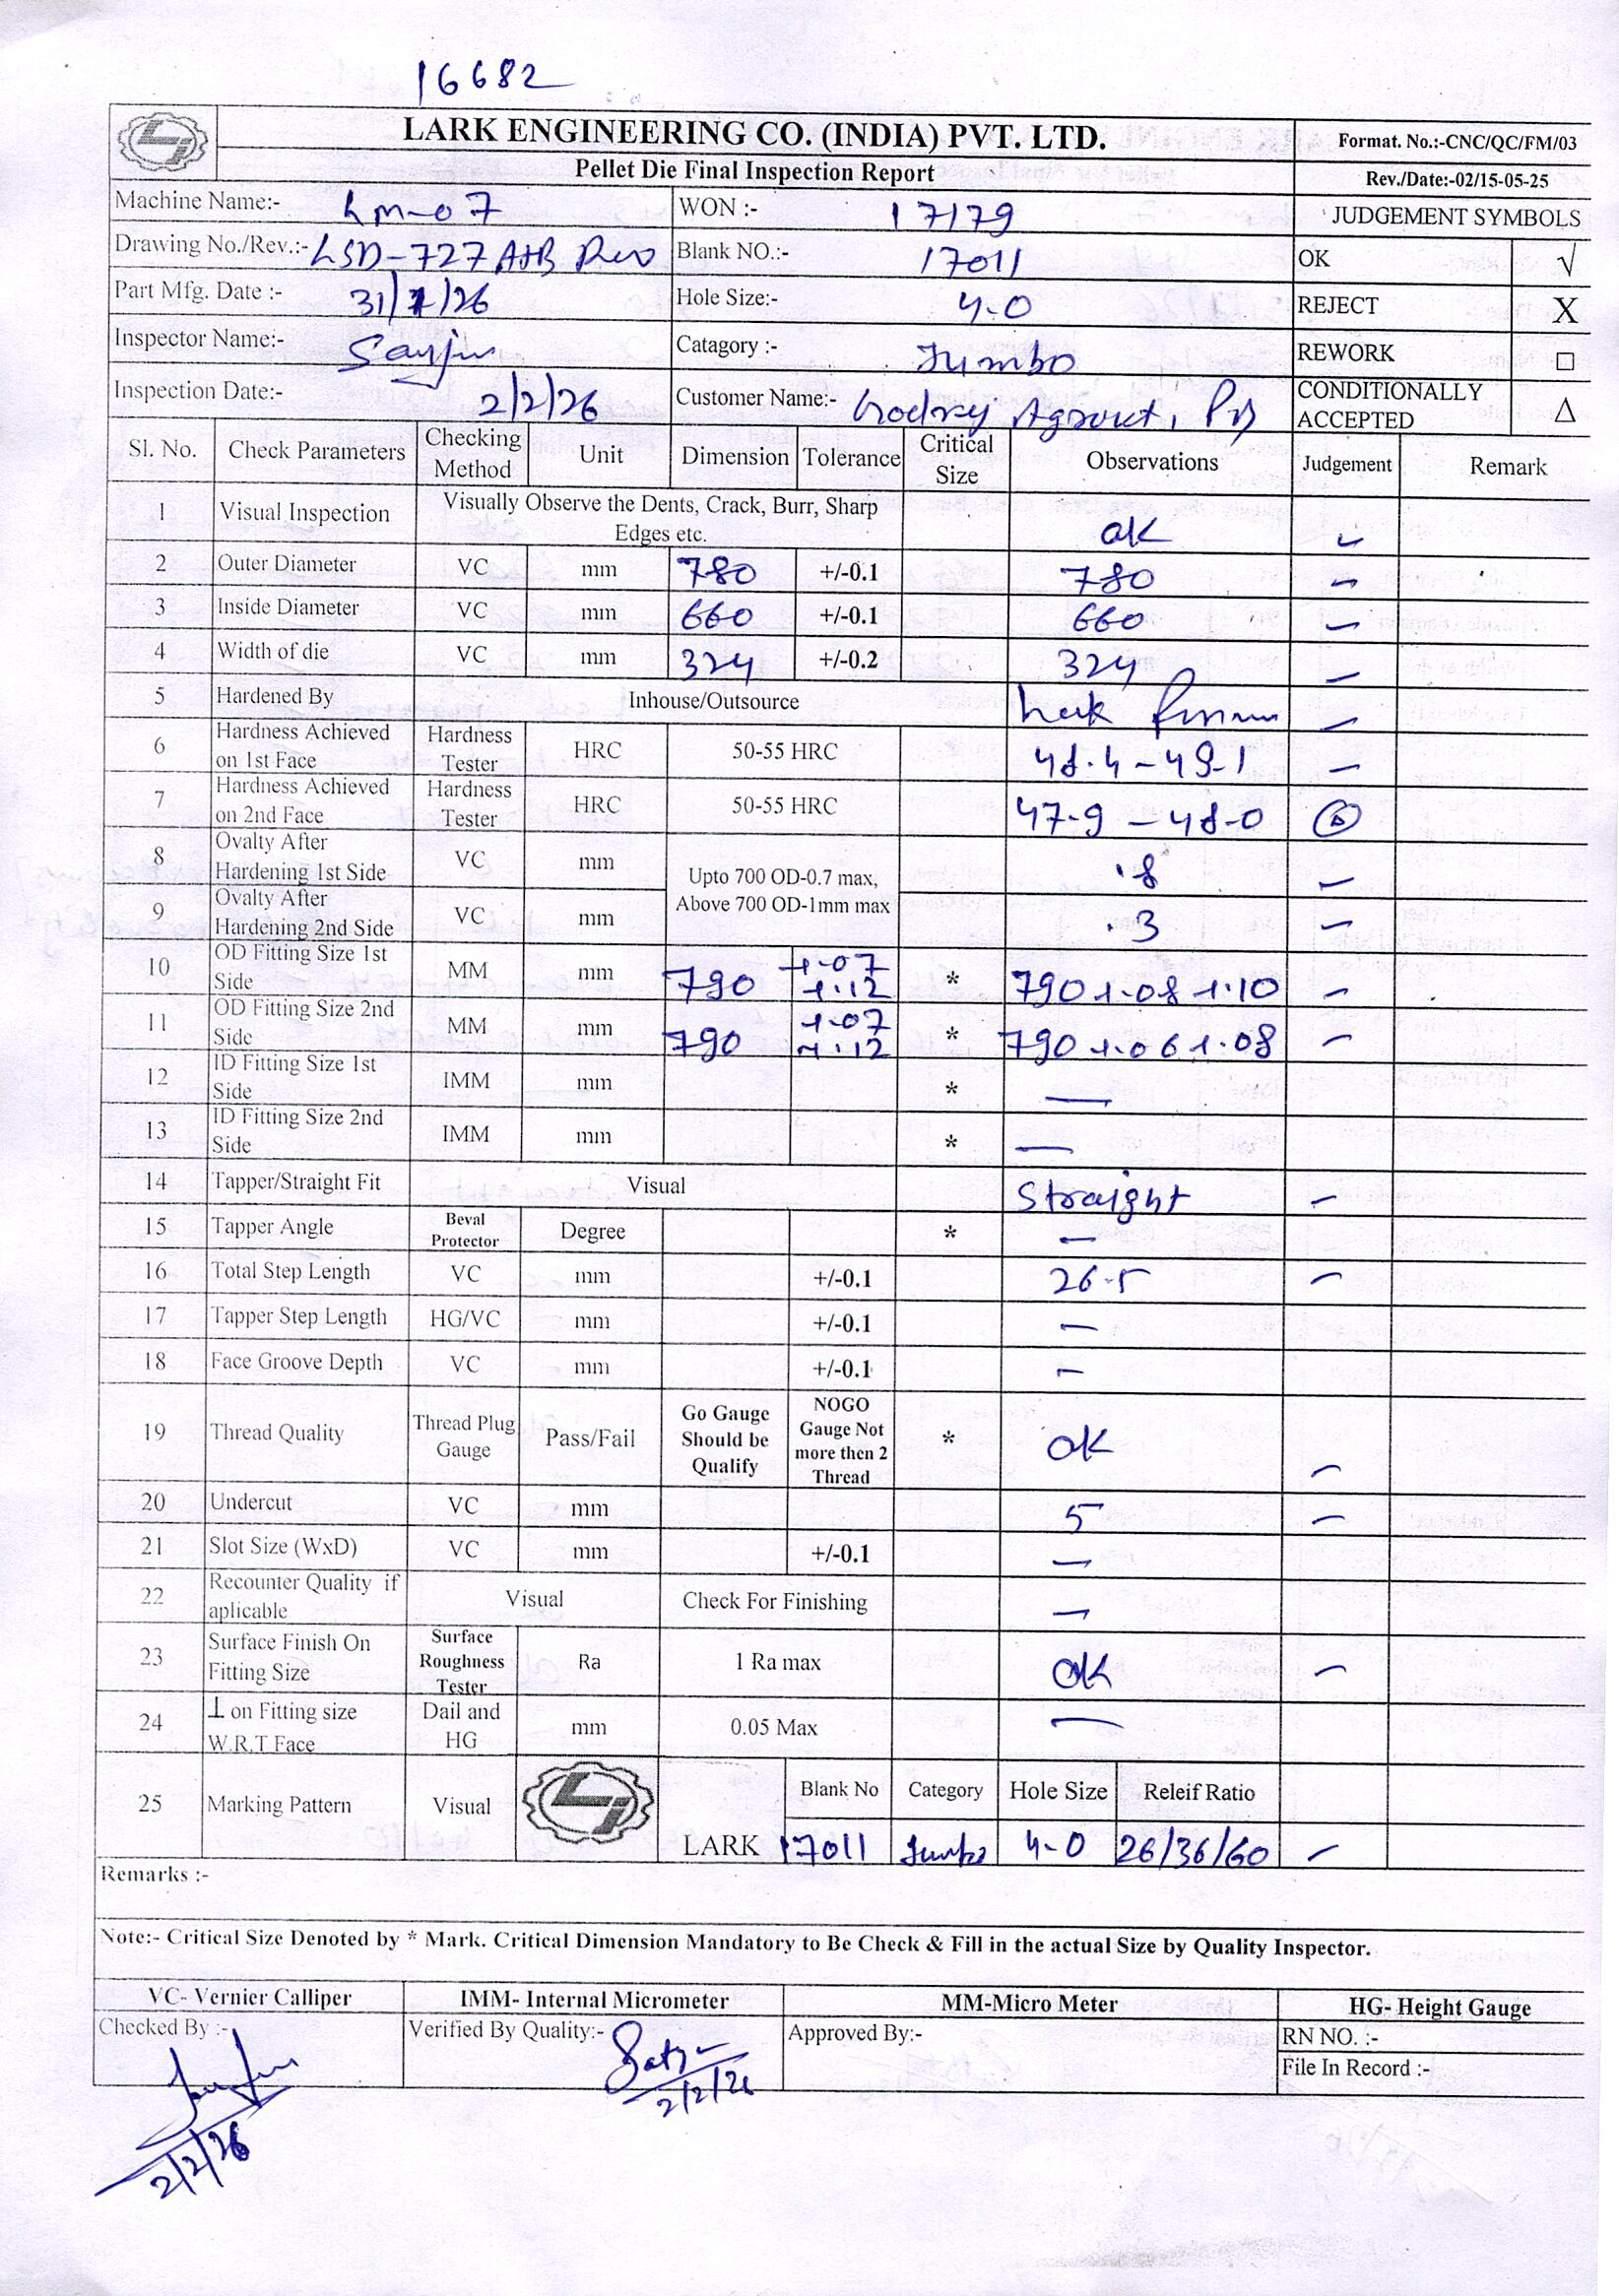 16682
LARK ENGINEERING CO. (INDIA) PVT. LTD.
Format. No.:-CNC/QC/FM/03
Pellet Die Final Inspection Report
Rev./Date:-02/15-05-25
Machine Name:- Lm-07 WON :- 17179 JUDGEMENT SYMBOLS
Drawing No./Rev.:- LSD-727 A+B Rev Blank NO.:- 17011 OK √
Part Mfg. Date :- 31/1/26 Hole Size:- 4.0 REJECT X
Inspector Name:- Catagory :- Jumbo REWORK □
Inspection Date:- 2/2/26 Customer Name:- Godrej Agrovet, CONDITIONALLY ACCEPTED Δ
Sl. No. Check Parameters Checking Method Unit Dimension Tolerance Critical Size Observations Judgement Remark
1 Visual Inspection Visually Observe the Dents, Crack, Burr, Sharp Edges etc. ok
2 Outer Diameter VC mm 780 +/-0.1 780
3 Inside Diameter VC mm 660 +/-0.1 660
4 Width of die VC mm 324 +/-0.2 324
5 Hardened By Inhouse/Outsource Lark
6 Hardness Achieved on 1st Face Hardness Tester HRC 50-55 HRC 48.4 - 49.1
7 Hardness Achieved on 2nd Face Hardness Tester HRC 50-55 HRC 47.9 - 48.0
8 Ovalty After Hardening 1st Side VC mm Upto 700 OD-0.7 max, Above 700 OD-1mm max .8
9 Ovalty After Hardening 2nd Side VC mm .3
10 OD Fitting Size 1st Side MM mm 790 +.07 +.12 * 790 +.08 +.10
11 OD Fitting Size 2nd Side MM mm 790 +.07 +.12 * 790 +.06 +.08
12 ID Fitting Size 1st Side IMM mm * —
13 ID Fitting Size 2nd Side IMM mm * —
14 Tapper/Straight Fit Visual Straight
15 Tapper Angle Beval Protector Degree * —
16 Total Step Length VC mm +/-0.1 26.5
17 Tapper Step Length HG/VC mm +/-0.1 —
18 Face Groove Depth VC mm +/-0.1 —
19 Thread Quality Thread Plug Gauge Pass/Fail Go Gauge Should be Qualify NOGO Gauge Not more then 2 Thread * ok
20 Undercut VC mm 5
21 Slot Size (WxD) VC mm +/-0.1 —
22 Recounter Quality if aplicable Visual Check For Finishing —
23 Surface Finish On Fitting Size Surface Roughness Tester Ra 1 Ra max ok
24 ⊥ on Fitting size W.R.T Face Dail and HG mm 0.05 Max —
25 Marking Pattern Visual Blank No Category Hole Size Releif Ratio
LARK 17011 Jumbo 4.0 26/36/60
Remarks :-
Note:- Critical Size Denoted by * Mark. Critical Dimension Mandatory to Be Check & Fill in the actual Size by Quality Inspector.
VC- Vernier Calliper IMM- Internal Micrometer MM-Micro Meter HG- Height Gauge
Checked By :- Verified By Quality:- Approved By:- RN NO. :-
File In Record :-
2/2/26
2/2/26